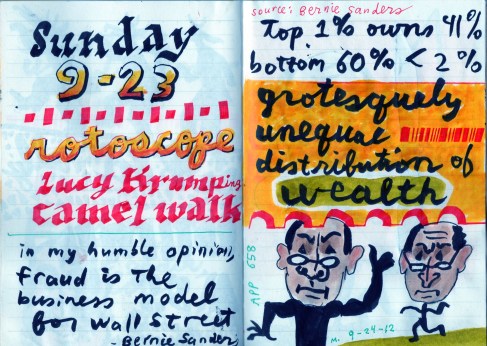 Sunday
9-23
rotoscope
Lucy Krumping
camel walk
in my humble opinion,
fraud is the
business model
for wall street
- Bernie Sanders
source: Bernie Sanders
Top 1% owns 41%
bottom 60% < 2%
grotesquely
unequal
distribution of
wealth
APP 658
m. 9-24-12